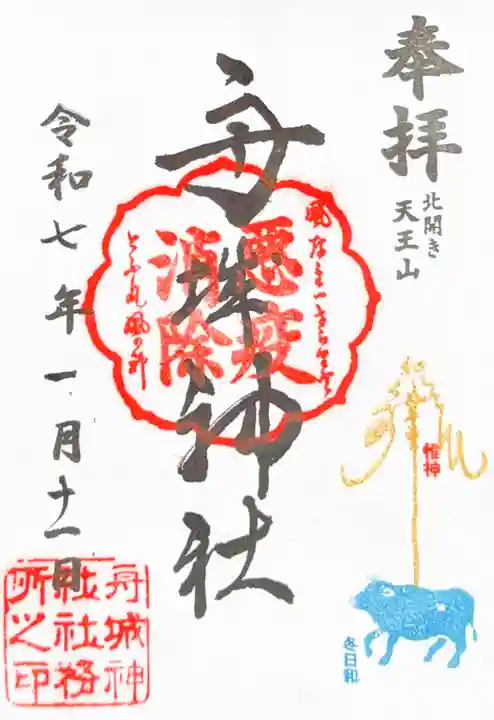 奉拝
北開き
天王山
舟城神社
悪疫
消除
惟神
冬日和
令和七年一月十一日
舟城神
社社務
所之印